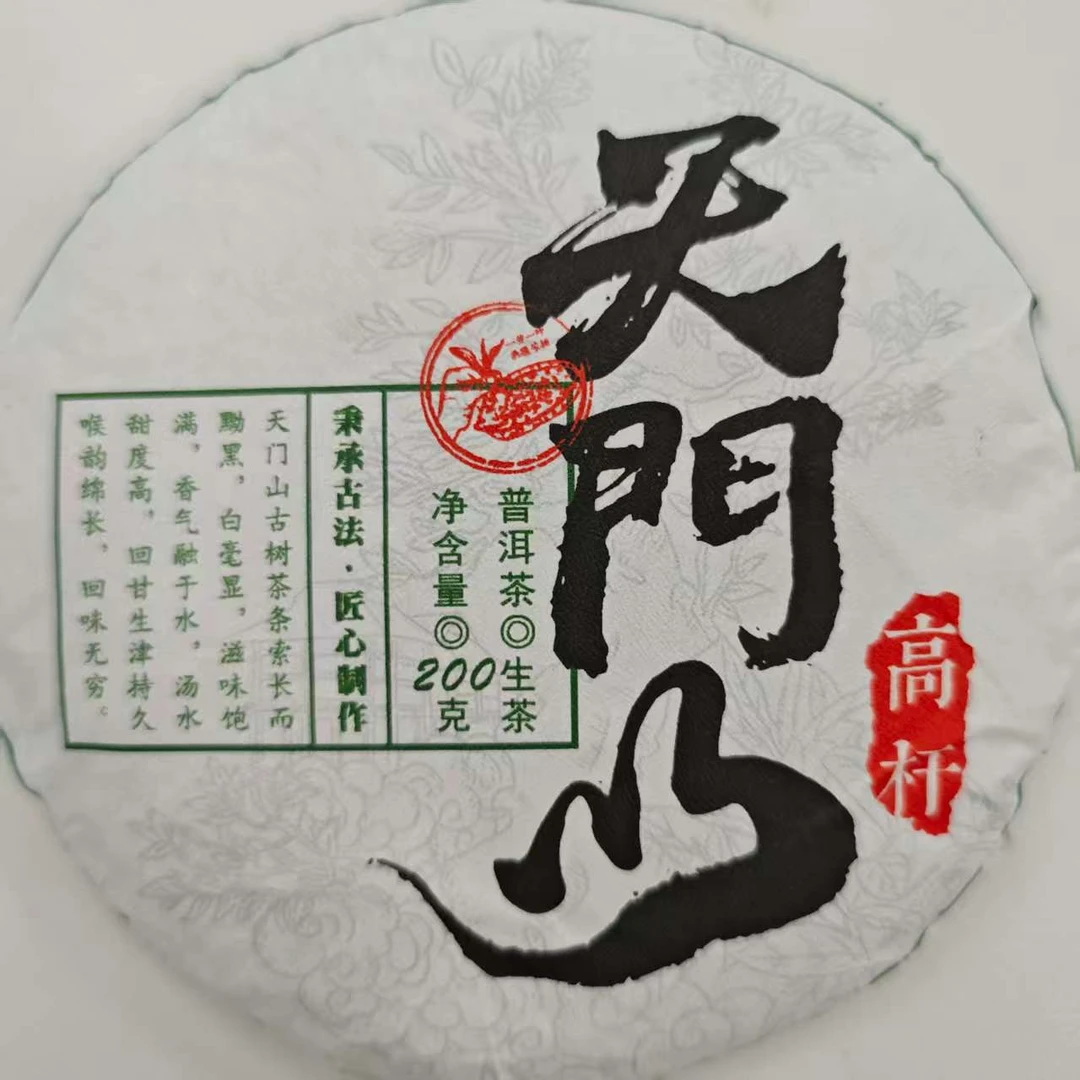 天門山
高杆
普洱茶◎生茶
净含量◎200克
秉承古法·匠心制作
天门山古树茶条索长而
黝黑，白毫显，滋味饱
满，香气融于水，汤水
甜度高，回甘生津持久
喉韵绵长，回味无穷。